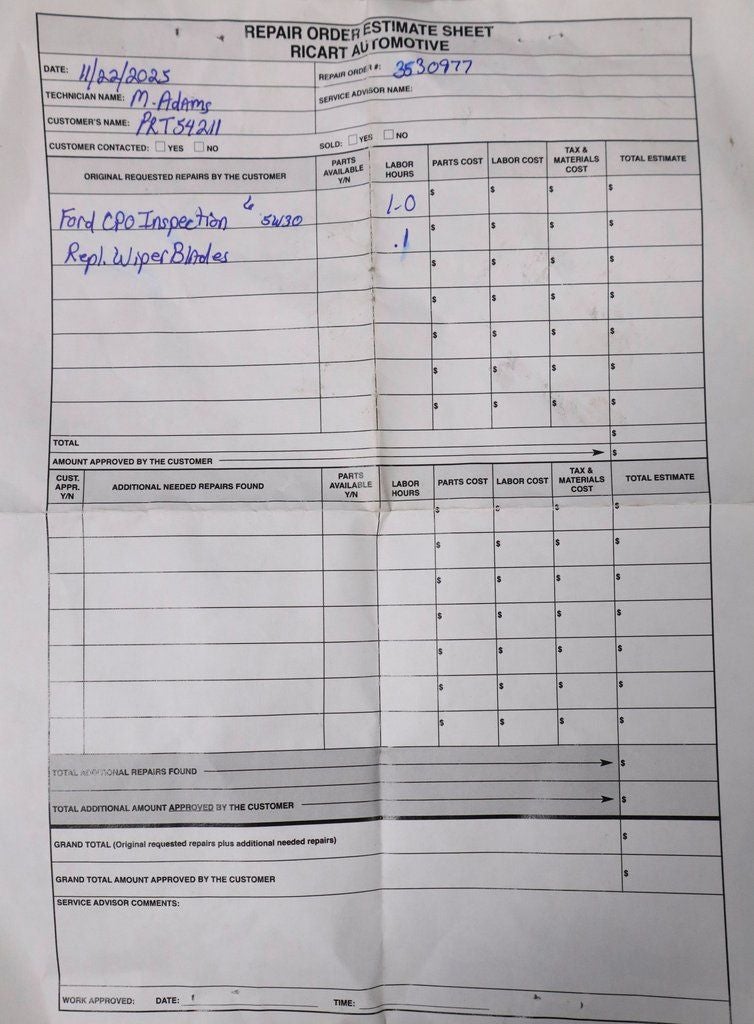 REPAIR ORDER ESTIMATE SHEET
RICART AUTOMOTIVE
DATE: 11/22/2025 REPAIR ORDER #: 3530977
TECHNICIAN NAME: M. Adams SERVICE ADVISOR NAME:
CUSTOMER'S NAME: PRT54211
CUSTOMER CONTACTED: YES NO SOLD: YES NO
ORIGINAL REQUESTED REPAIRS BY THE CUSTOMER PARTS AVAILABLE Y/N LABOR HOURS PARTS COST LABOR COST TAX & MATERIALS COST TOTAL ESTIMATE
Ford CPO Inspection 6 5W30 1.0 $ $ $ $
Repl. Wiper Blades .1 $ $ $ $
$ $ $ $
$ $ $ $
$ $ $ $
$ $ $ $
$ $ $ $
TOTAL $
AMOUNT APPROVED BY THE CUSTOMER $
CUST. APPR. Y/N ADDITIONAL NEEDED REPAIRS FOUND PARTS AVAILABLE Y/N LABOR HOURS PARTS COST LABOR COST TAX & MATERIALS COST TOTAL ESTIMATE
$ $ $ $
$ $ $ $
$ $ $ $
$ $ $ $
$ $ $ $
$ $ $ $
$ $ $ $
TOTAL ADDITIONAL REPAIRS FOUND $
TOTAL ADDITIONAL AMOUNT APPROVED BY THE CUSTOMER $
GRAND TOTAL (Original requested repairs plus additional needed repairs) $
GRAND TOTAL AMOUNT APPROVED BY THE CUSTOMER $
SERVICE ADVISOR COMMENTS:
WORK APPROVED: DATE: TIME: